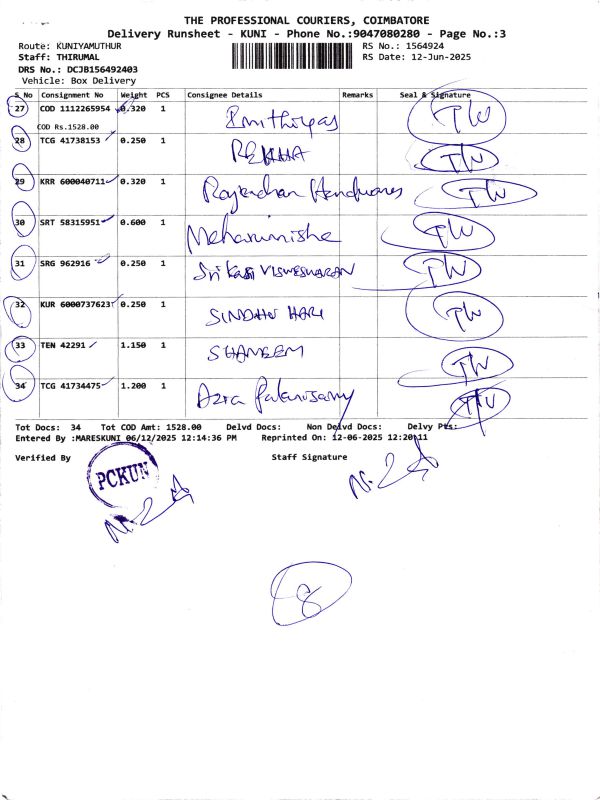 THE PROFESSIONAL COURIERS, COIMBATORE
Delivery Runsheet - KUNI - Phone No.:9047080280 - Page No.:3
Route: KUNIYAMUTHUR RS No.: 1564924
Staff: THIRUMAL RS Date: 12-Jun-2025
DRS No.: DCJB156492403
Vehicle: Box Delivery
S No Consignment No Weight PCS Consignee Details Remarks Seal & Signature
27 COD 1112265954 0.320 1 TW
COD Rs.1528.00
28 TCG 41738153 0.250 1 REKHA TW
29 KRR 600040711 0.320 1 Rajendran TW
30 SRT 58315951 0.600 1 Meharunisha TW
31 SRG 962916 0.250 1 Srikasi VISWESWARAN TW
32 KUR 6000737623 0.250 1 SINDHU HARI TW
33 TEN 42291 1.150 1 SHAMEEM TW
34 TCG 41734475 1.200 1 Azra Palanisamy TW
Tot Docs: 34 Tot COD Amt: 1528.00 Delvd Docs: Non Delvd Docs: Delvy Pts:
Entered By :MARESKUNI 06/12/2025 12:14:36 PM Reprinted On: 12-06-2025 12:20:11
Verified By Staff Signature
PCKUN
8